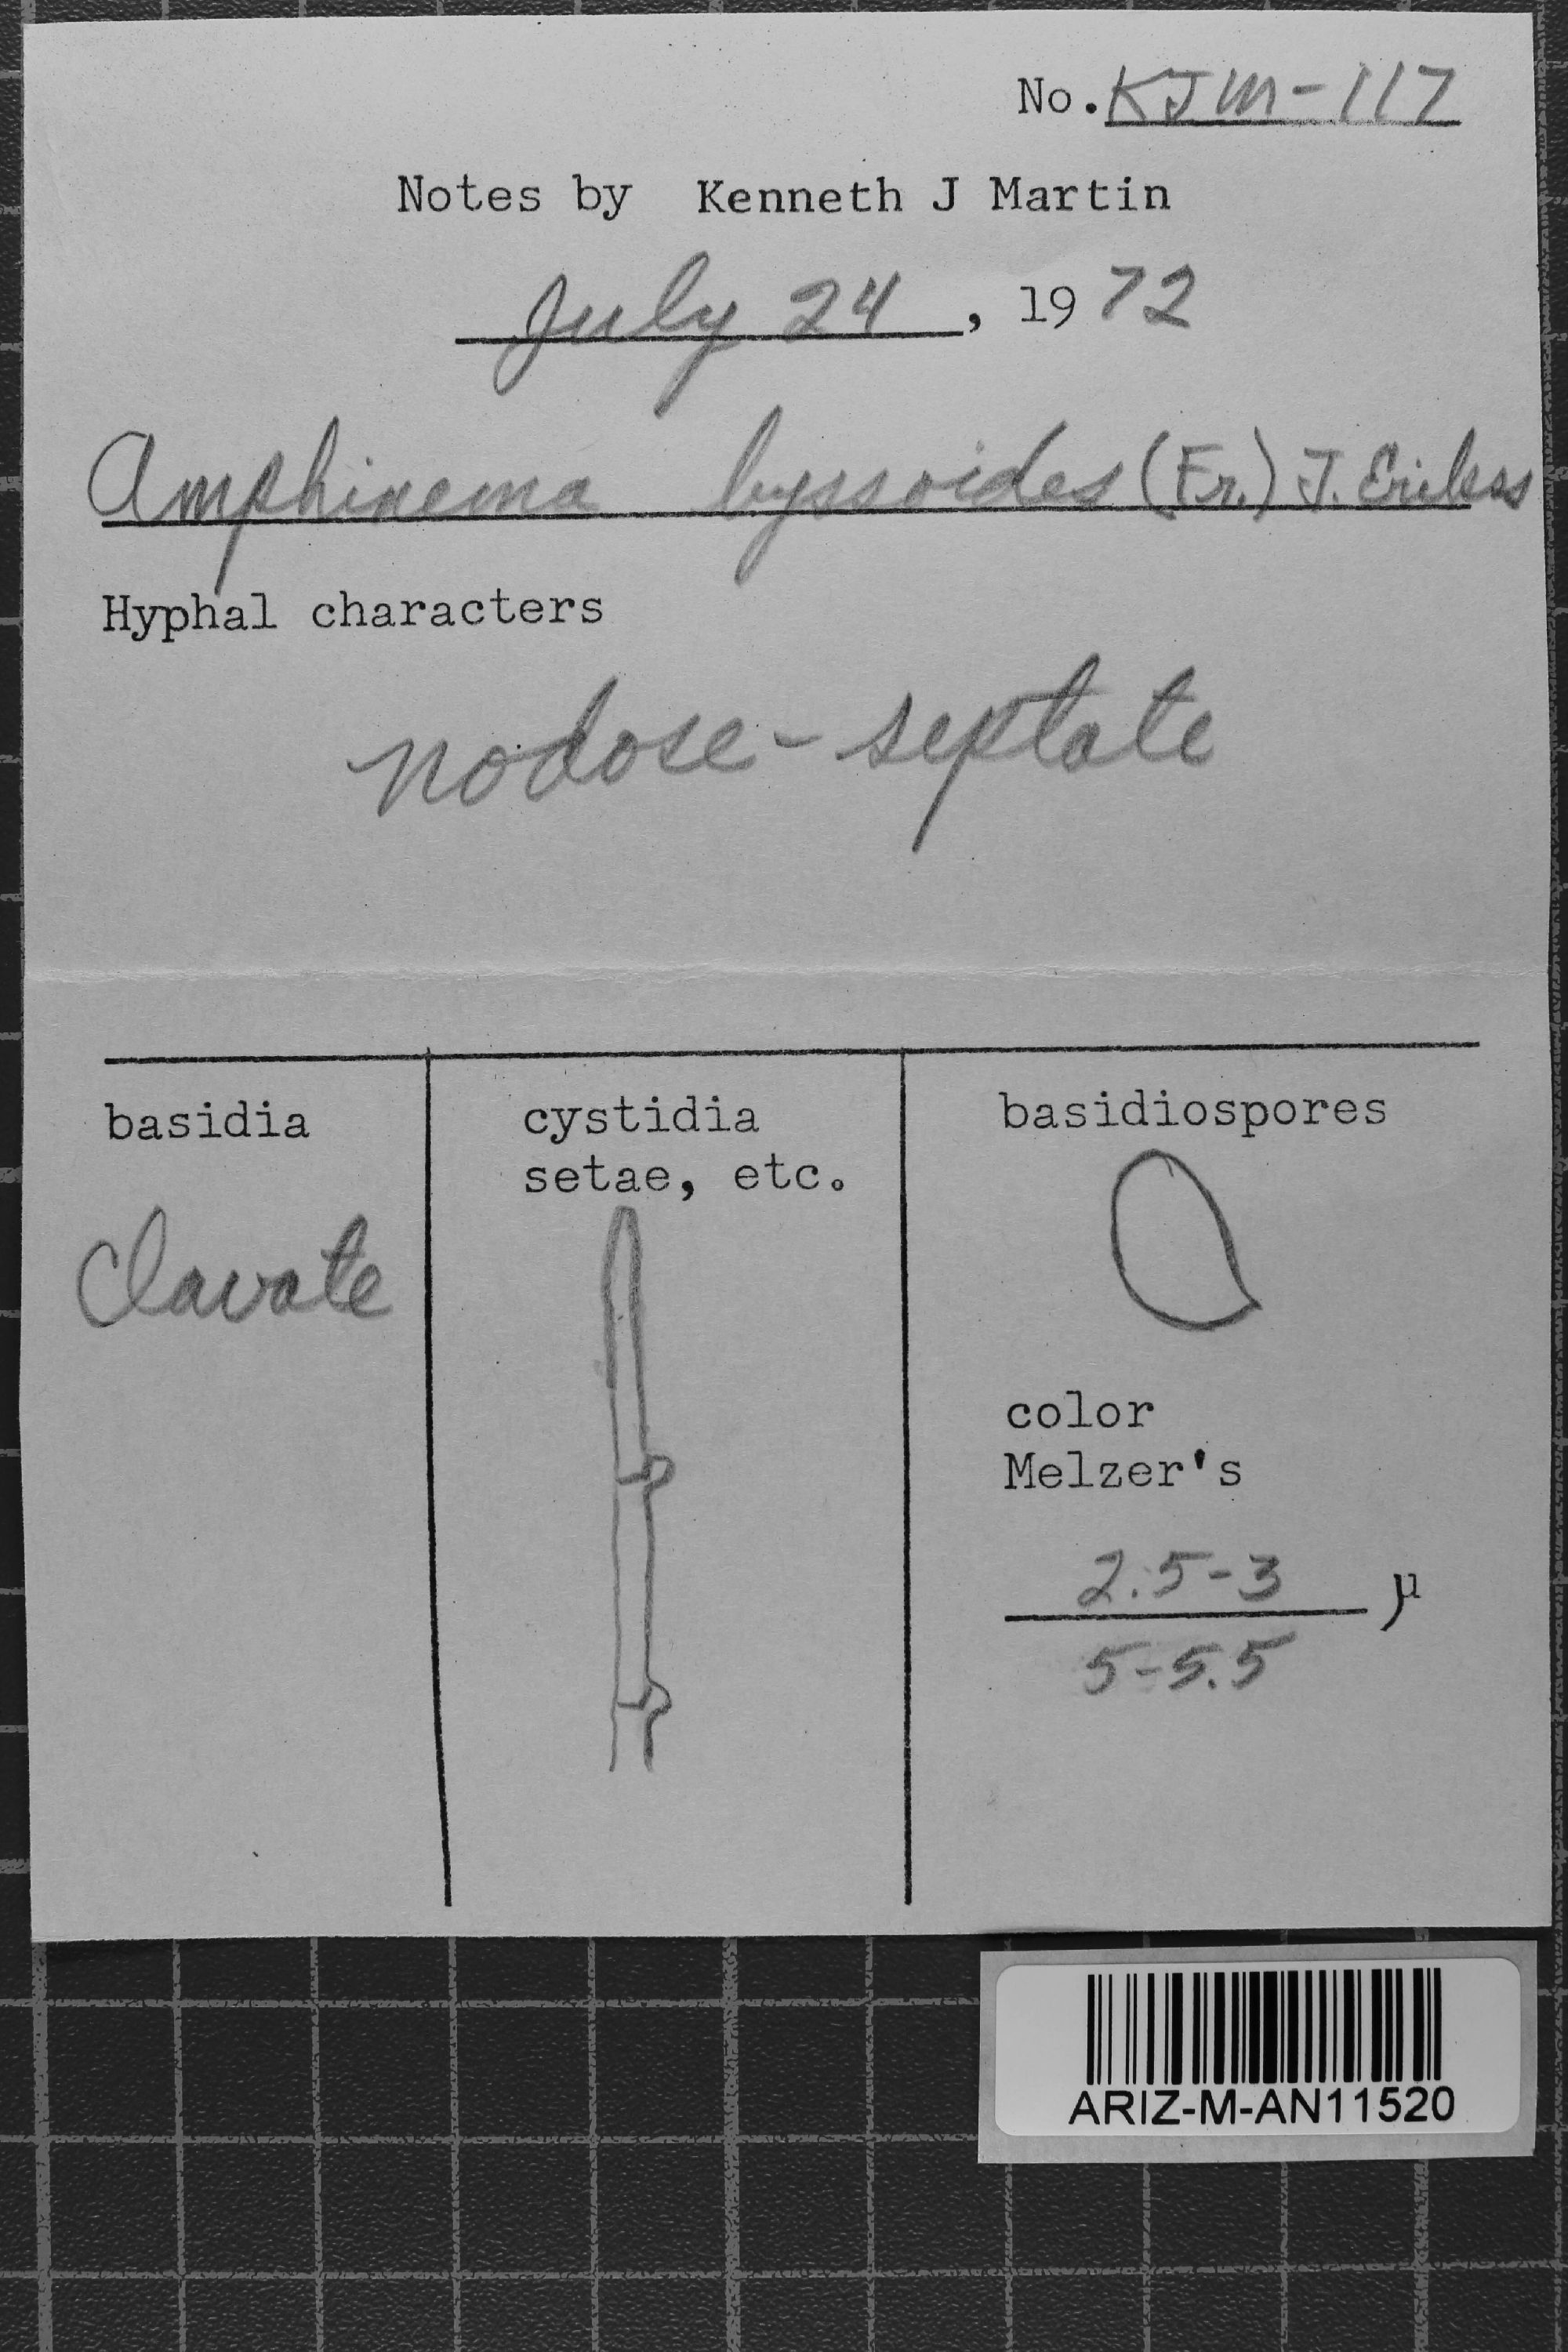 No. KJM-117
Notes by Kenneth J Martin
July 24, 1972
Amphinema byssoides (Fr.) J. Erikss
Hyphal characters
nodose-septate
basidia
cystidia
setae, etc.
basidiospores
Clavate
color
Melzer's
2.5-3 µ
5-5.5
ARIZ-M-AN11520